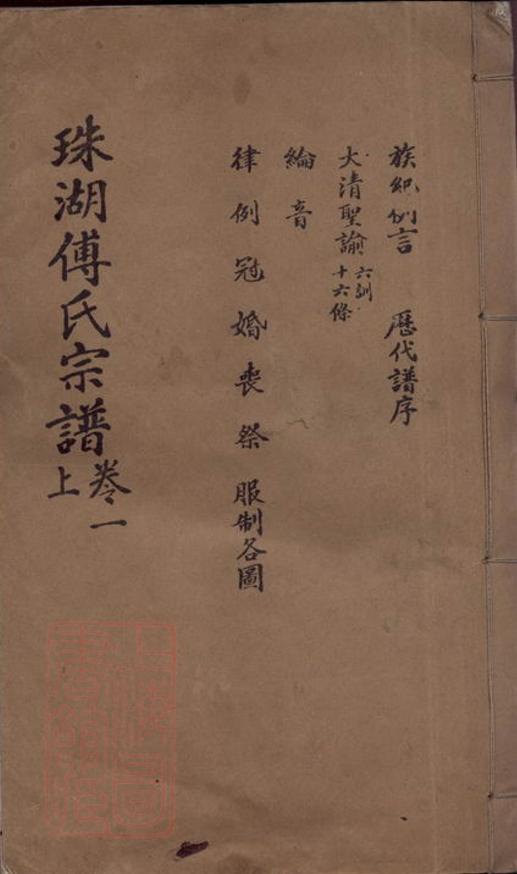 族紀例言 歷代譜序
大清聖諭 六訓 十六條
綸音
律例冠婚喪祭 服制各圖
珠湖傅氏宗譜 卷一上